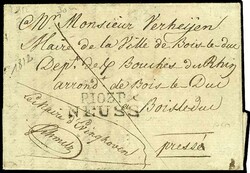 A Mr Monsieur Verheijen
Maire de la Ville de Bois-le-duc
Dept des Bouches du Rhin
arrond. de Bois le Duc
Boisleduc
pressé
1812
P.103.P.
NEUSS